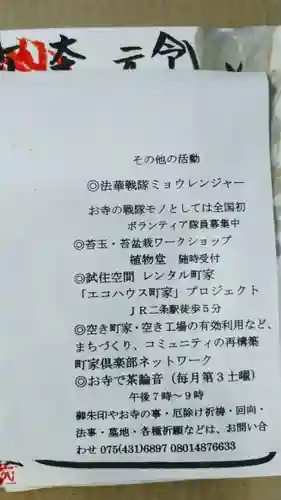 令
元
その他の活動
◎法華戦隊ミョウレンジャー
お寺の戦隊モノとしては全国初
ボランティア隊員募集中
◎苔玉・苔盆栽ワークショップ
植物堂 随時受付
◎試住空間 レンタル町家
「エコハウス町家」プロジェクト
JR二条駅徒歩5分
◎空き町家・空き工場の有効利用など、
まちづくり、コミュニティの再構築
町家倶楽部ネットワーク
◎お寺で茶論音（毎月第3土曜）
午後7時～9時
御朱印やお寺の事・厄除け祈祷・回向・
法事・墓地・各種祈願などは、お問い合
わせ 075(431)6897 08014876633